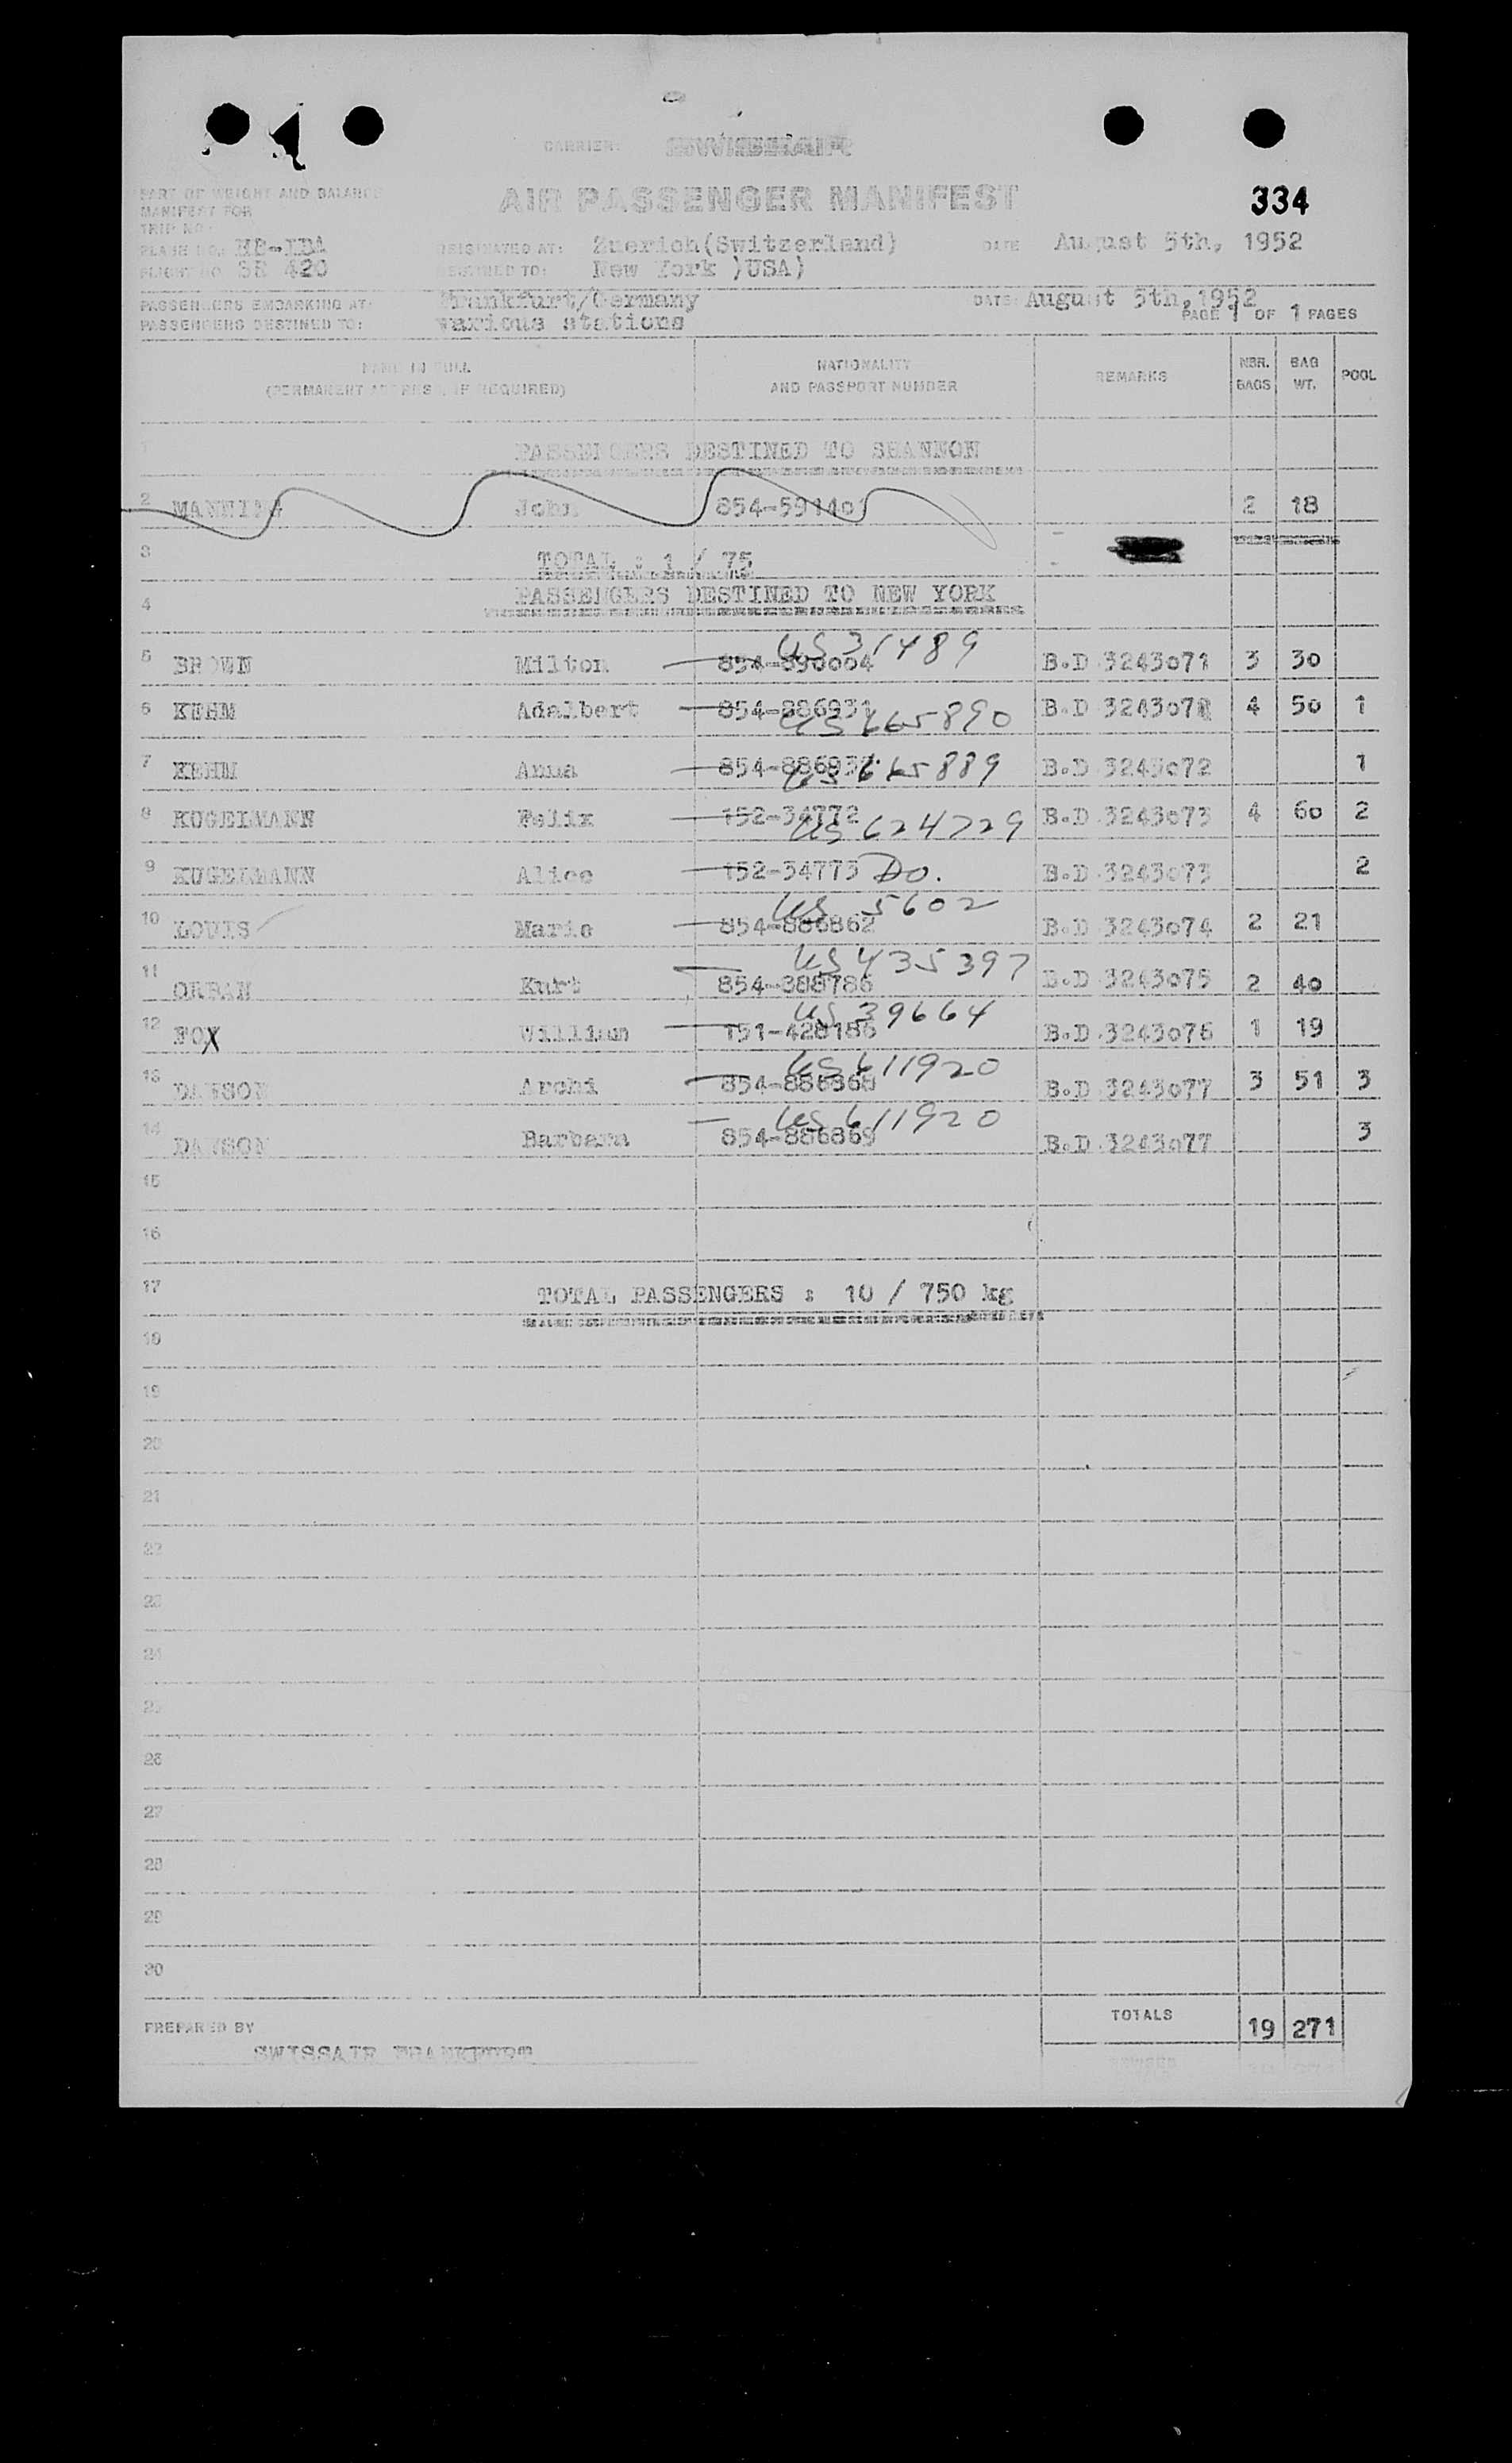 CARRIER: SWISSAIR
PART OF WEIGHT AND BALANCE
AIR PASSENGER MANIFEST
334
MANIFEST FOR
TRIP NO.
PLANE NO.: HB-IDA ORIGINATED AT: Zuerich(Switzerland) DATE August 5th, 1952
FLIGHT NO. SR 420 DESTINED TO: New York )USA)
PASSENGERS EMBARKING AT: Frankfurt/Germany DATE: August 5th,1952
PASSENGERS DESTINED TO: various stations PAGE 1 OF 1 PAGES
NAME IN FULL NATIONALITY REMARKS NBR. BAG POOL
(PERMANENT ADDRESS, IF REQUIRED) AND PASSPORT NUMBER BAGS WT.
1 PASSENGERS DESTINED TO SHANNON
2 MANNING John 2 18
3 TOTAL : 1 / 75
4 PASSENGERS DESTINED TO NEW YORK
US 31489
5 BROWN Milton 854-890004 B.D 3243071 3 30
6 KEHM Adalbert 854-886931 B.D 4 50 1
US 665890
7 KEHM Anna B.D 3243072 1
US 665889
8 KUGELMANN Felix 152-34772 B.D 3243073 4 60 2
US 624729
9 KUGELMANN Alice 152-34773 Do. B.D 3243073 2
US 5602
10 LOUIS Marie 854-886862 B.D 3243074 2 21
US 435397
11 ORBAN Kurt B.D 3243075 2 40
US 39664
12 FOX William 151-428186 B.D 3243076 1 19
US 611920
13 DAWSON Archi 854-886868 B.D 3243077 3 51 3
US 611920
14 DAWSON Barbara 854-886869 B.D 3243077 3
15
16
17 TOTAL PASSENGERS : 10 / 750 kg
18
19
20
21
22
23
24
25
26
27
28
29
30
PREPARED BY TOTALS 19 271
SWISSAIR FRANKFURT